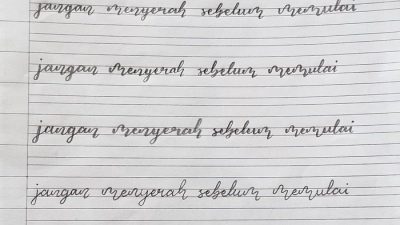 jangan menyerah sebelum memulai
jangan menyerah sebelum memulai
jangan menyerah sebelum memulai
jangan menyerah sebelum memulai